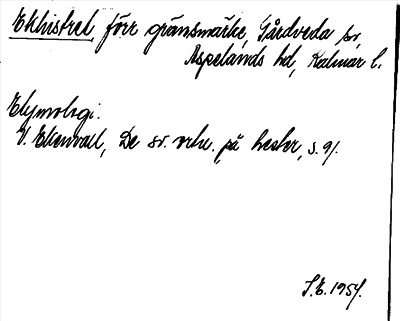 Ekhistrel, förr gränsmärke, Gårdveda sn,
Aspelands hd, Kalmar l.
Etymologi:
V. Ekenvall, De sv. ortn. på hester, s. 91.
S.E. 1954.